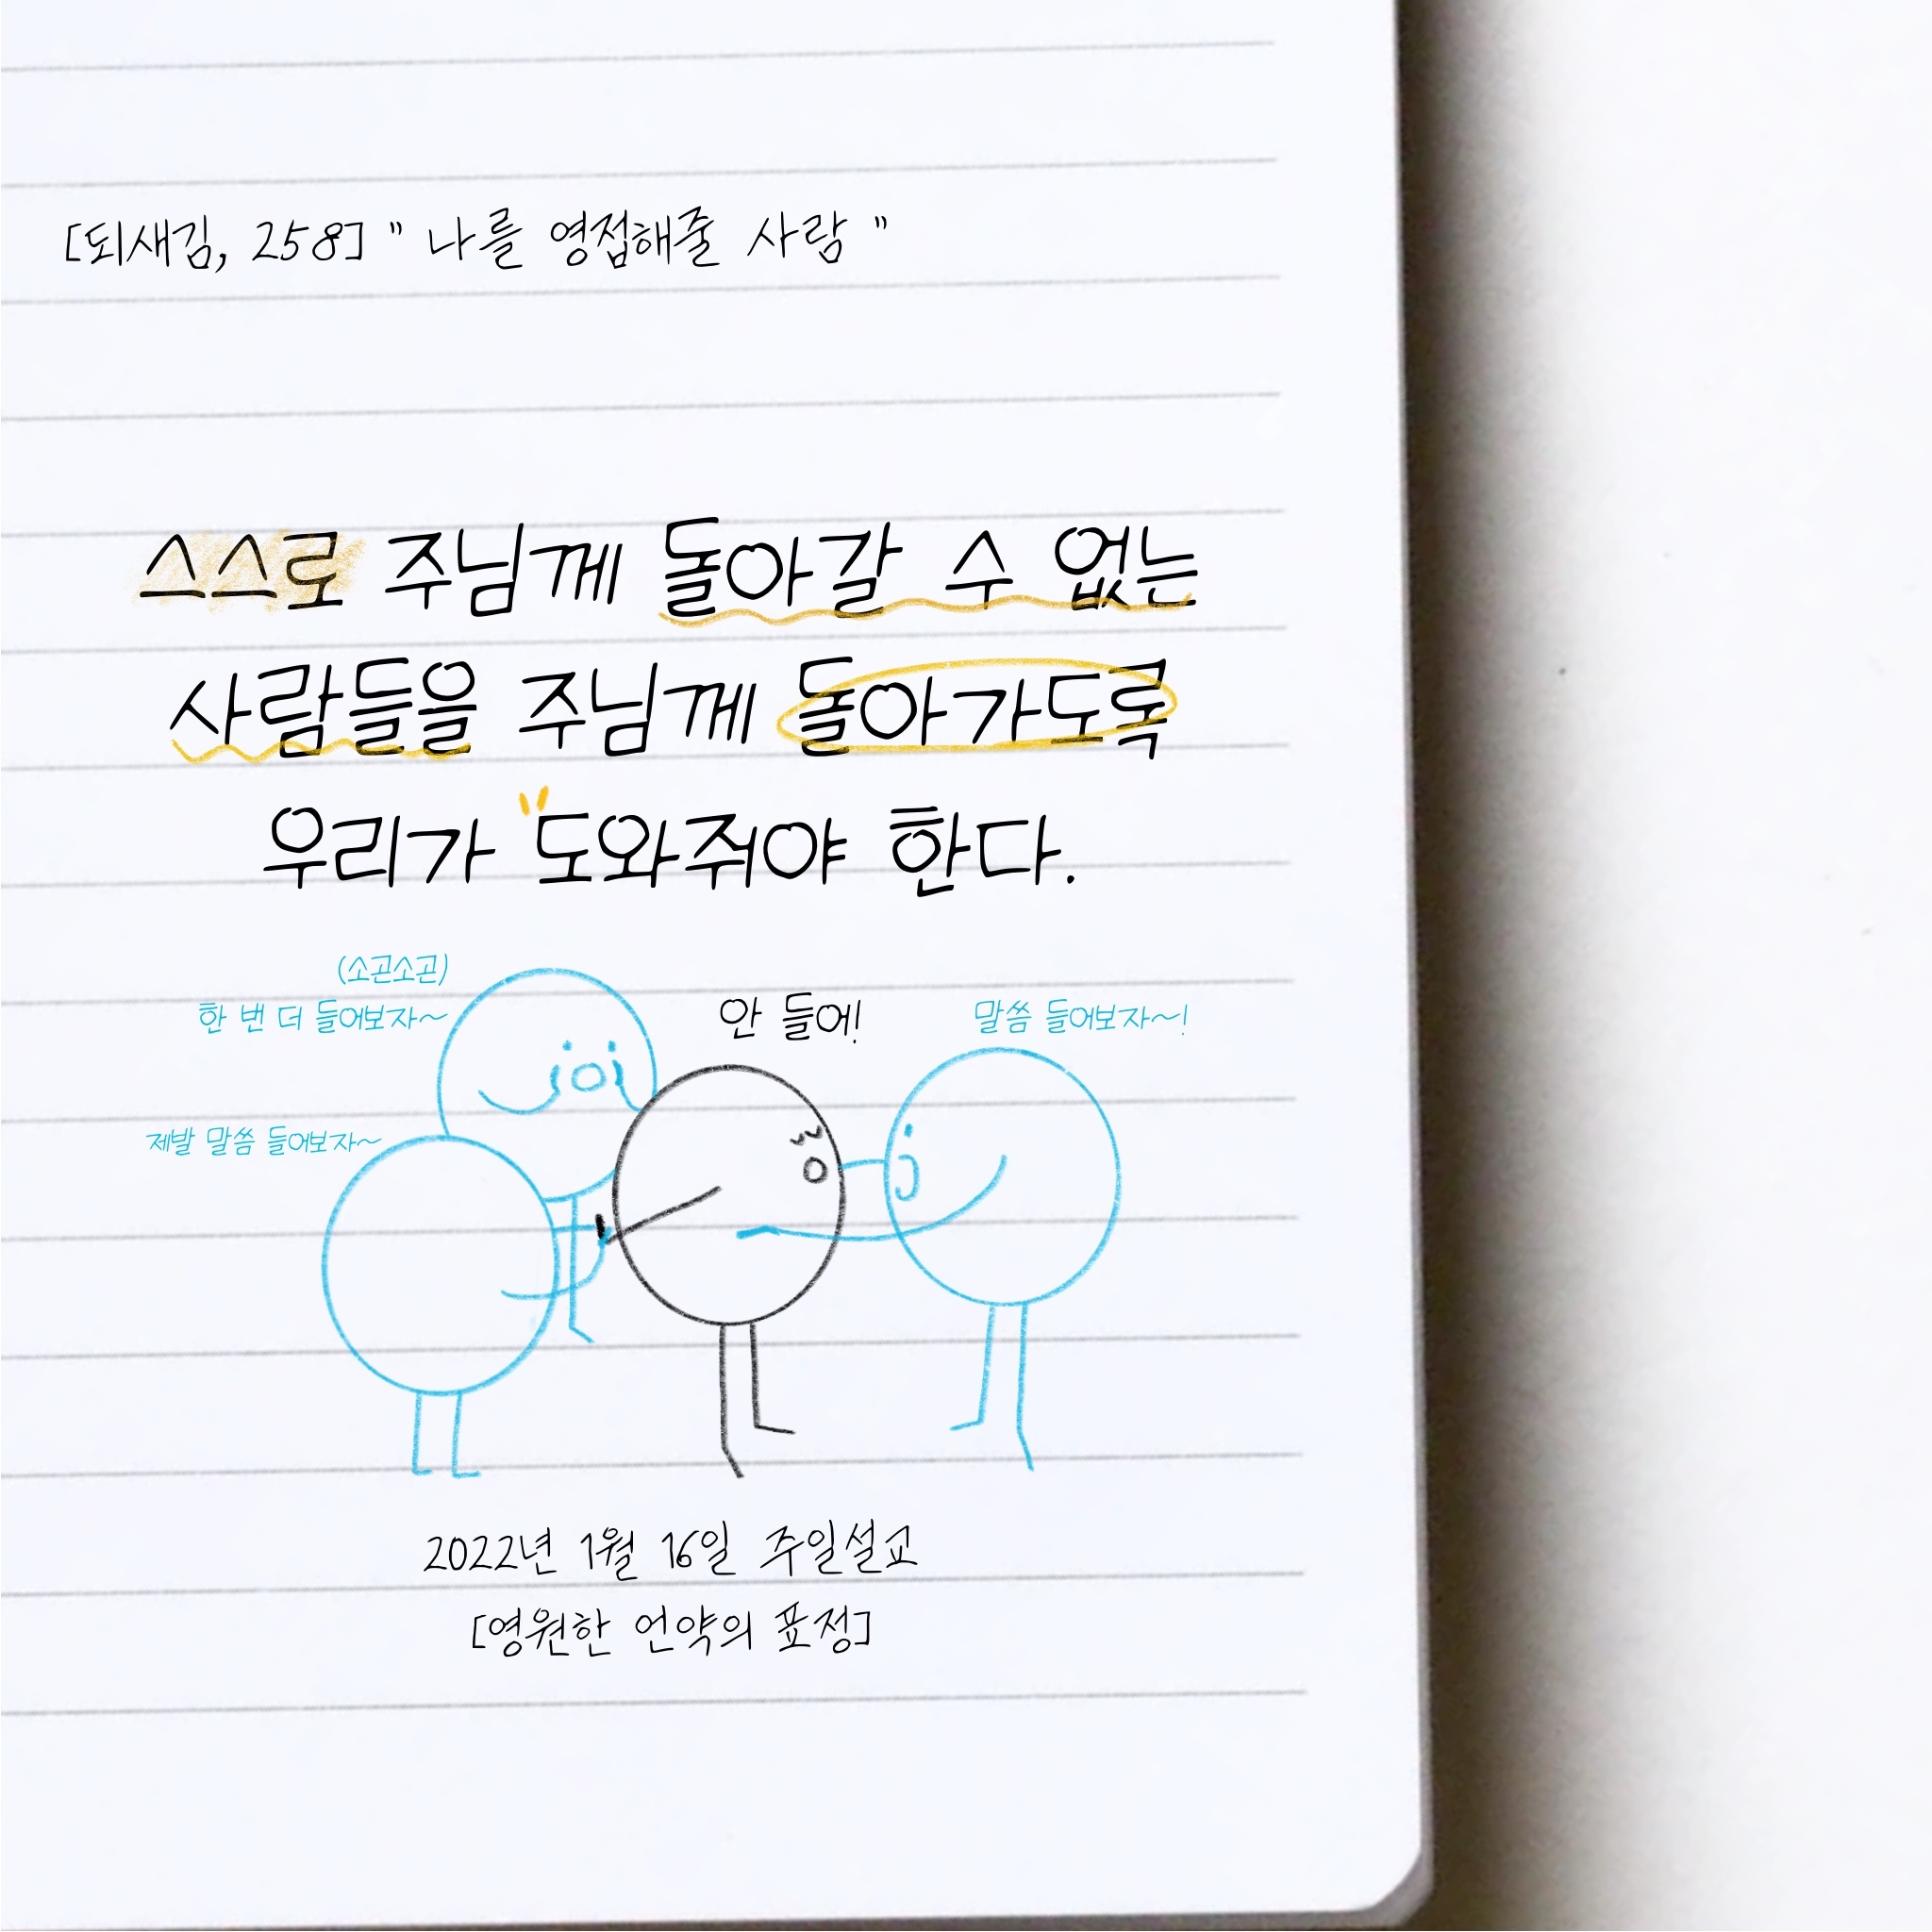 [되새김, 258] " 나를 영접해줄 사람 "
스스로 주님께 돌아갈 수 없는
사람들을 주님께 돌아가도록
우리가 도와줘야 한다.
(소곤소곤)
한 번 더 들어보자~
안 들어!
말씀 들어보자~!
제발 말씀 들어보자~
2022년 1월 16일 주일설교
[영원한 언약의 표정]